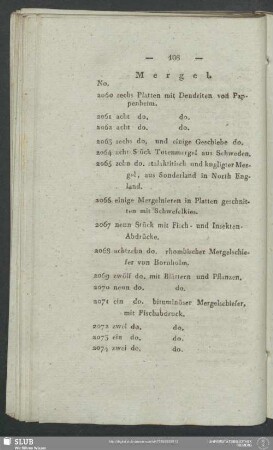 — 108 —
Mergel.
No.
2060 sechs Platten mit Dendriten von Pap-
penheim.
2061 acht do. do.
2062 acht do. do.
2063 sechs do, und einige Geschiebe do.
2064 acht Stück Tutenmergel aus Schweden.
2065 zehn do, stalaktitisch und kugligter Mer-
gel, aus Sunderland in North Eng-
land.
2066 einige Mergelnieren in Platten geschnit-
ten mit Schwefelkies.
2067 neun Stück mit Fisch- und Insekten-
Abdrücke.
2068 achtzehn do. bituminöser Mergelschie-
fer von Bornholm.
2069 zwölf do, mit Blättern und Pflanzen.
2070 neun do. do.
2071 ein do. bituminöser Mergelschiefer,
mit Fischabdruck.
2072 zwei do. do.
2073 ein do. do.
2074 zwei do. do.
SLUB
Wir führen Wissen.